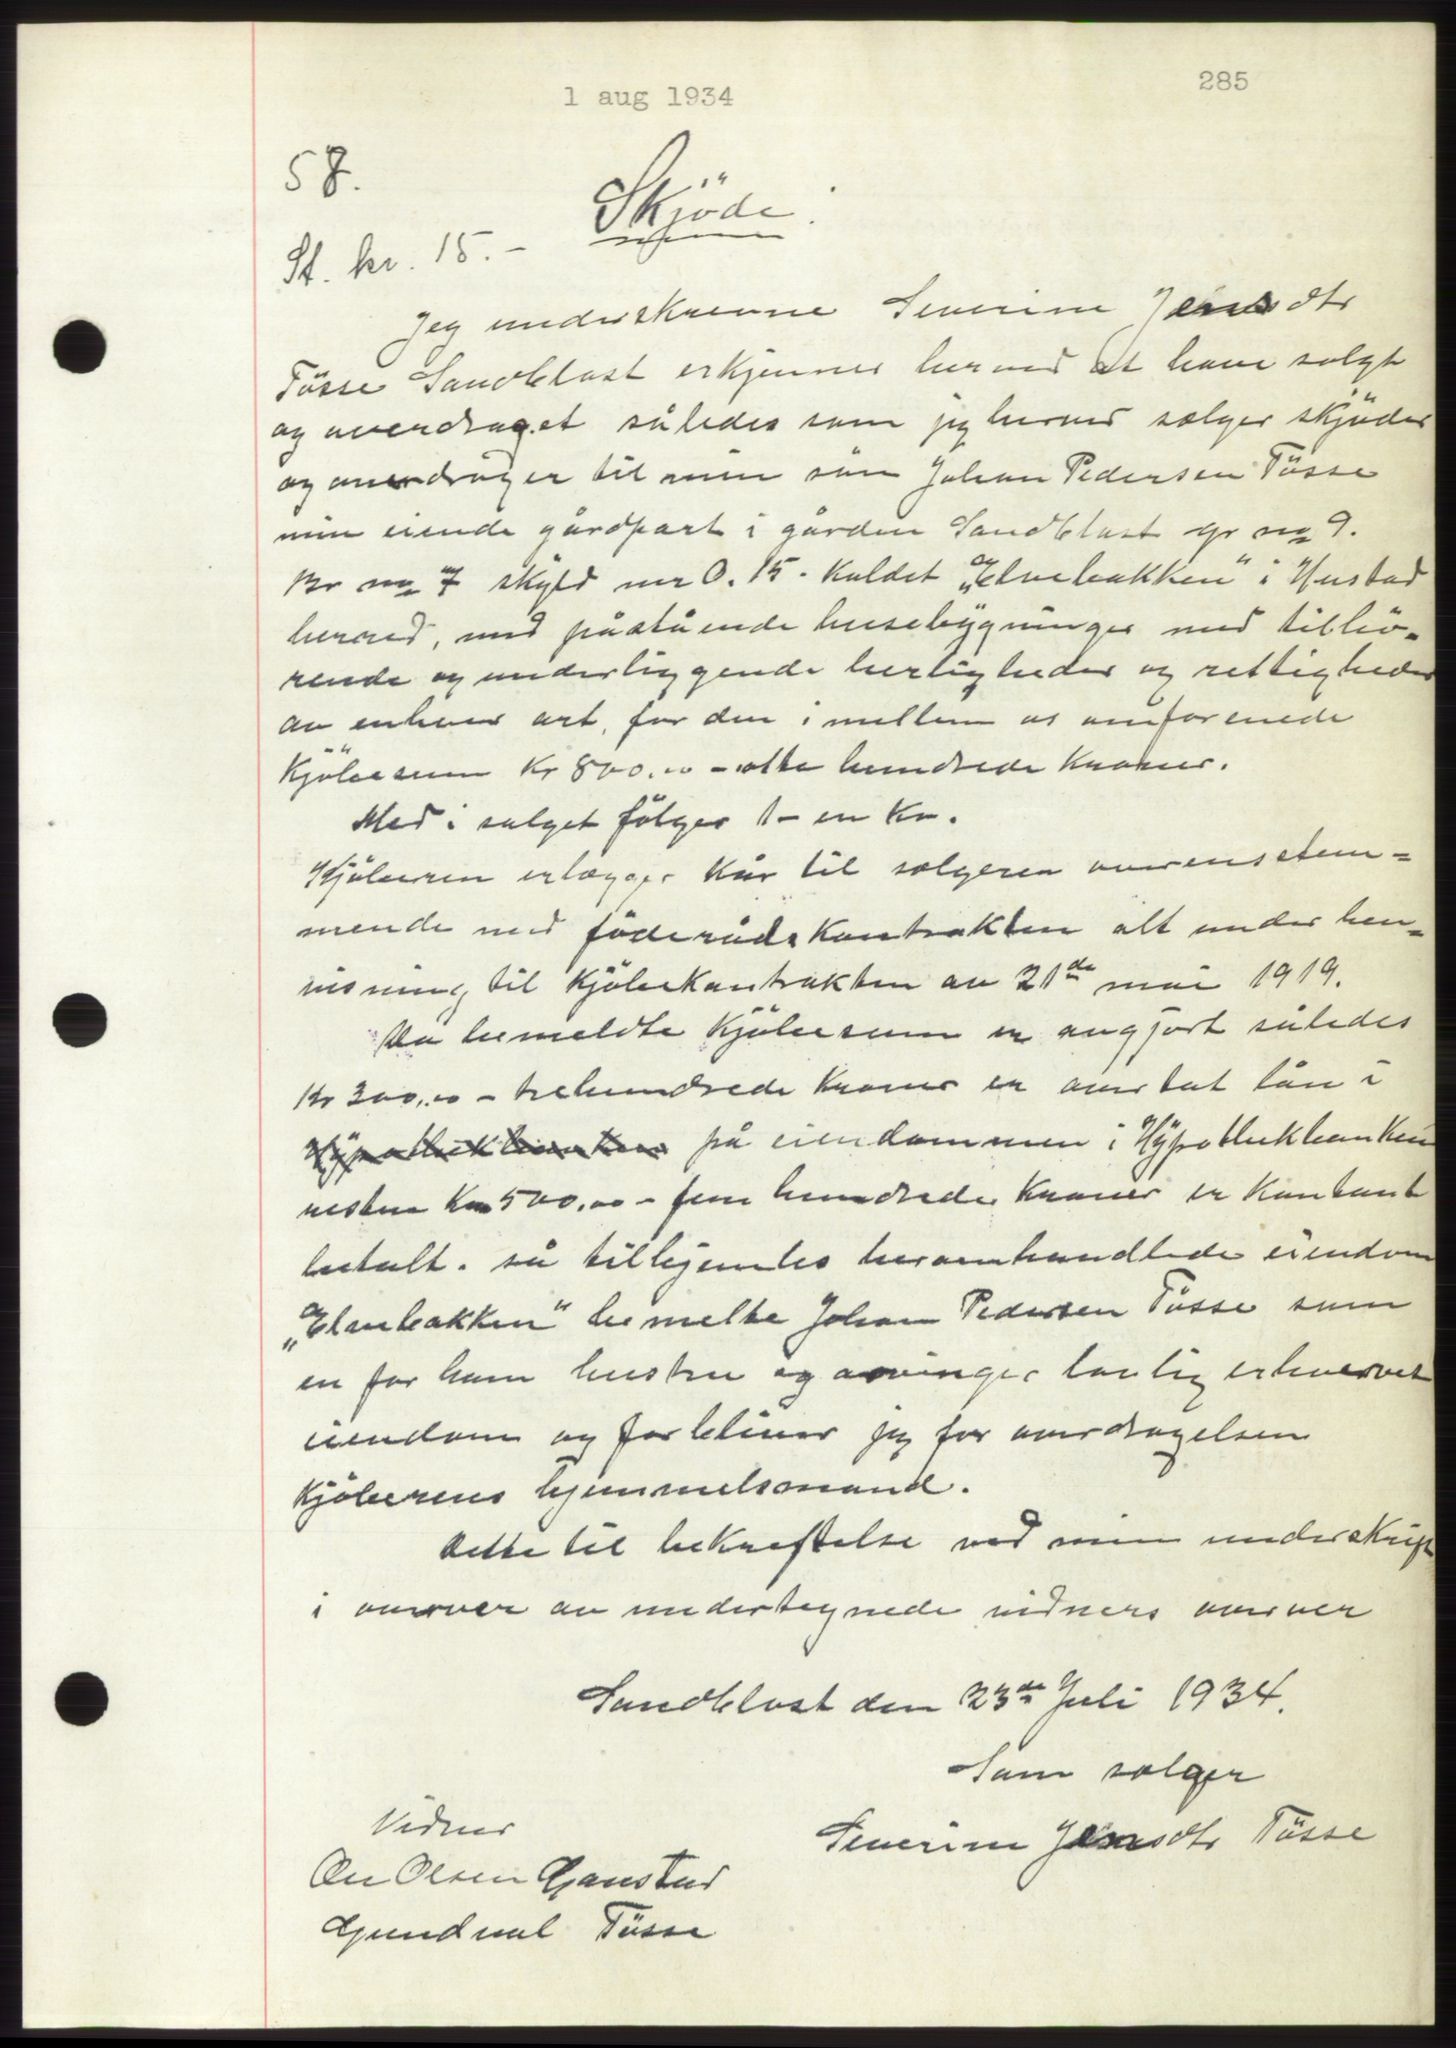 1 aug 1934
285
58.
Skjöde.
St. kr. 15.-
Jeg underskrevne Severine Jensdtr
Tösse Sandblast erkjenner herved at have solgt
og overdraget således som jeg herved sælger skjöder
og overdrager til min sön Johan Pedersen Tösse
min eiende gårdpart i gården Sandblast gr no 9.
Br no 7 skyld mr 0.15. kaldet "Elvebakken" i Hustad
herred, med påstående husebygninger med tilhö-
rende og underliggende herligheder og rettigheder
av enhver art, for den imellem os omforenede
kjöbesum Kr 800.00 - otte hundrede kroner.
Med i salget fölger 1 - en ku.
Kjöberen erlægger kår til sælgeren overenstem-
mende med föderådskontrakten alt under hen-
visning til kjöbekontrakten av 21de mai 1919.
Da bemeldte kjöbesum er avgjort således
Kr 300.00 - trehundrede kroner er overtat lån i
Hypothekbanken på eiendommen i Hypothekbanken
resten Kr 500.00 - fem hundrede kroner er kontant
betalt. så tilhjemles heromhandlede eiendom
"Elvebakken" bemelte Johan Pedersen Tösse som
en for ham hustru og arvinger lovlig erhvervet
eiendom og forbliver jeg for overdragelsen
kjöberens hjemmelsmand.
Dette til bekræftelse ved min underskrift
i overvær av undertegnede vidners overvær
Sandblast den 23de Juli 1934.
Som sælger
Severine Jensdtr Tösse
Vidner
Ole Olsen Gaustad
Gundval Tösse